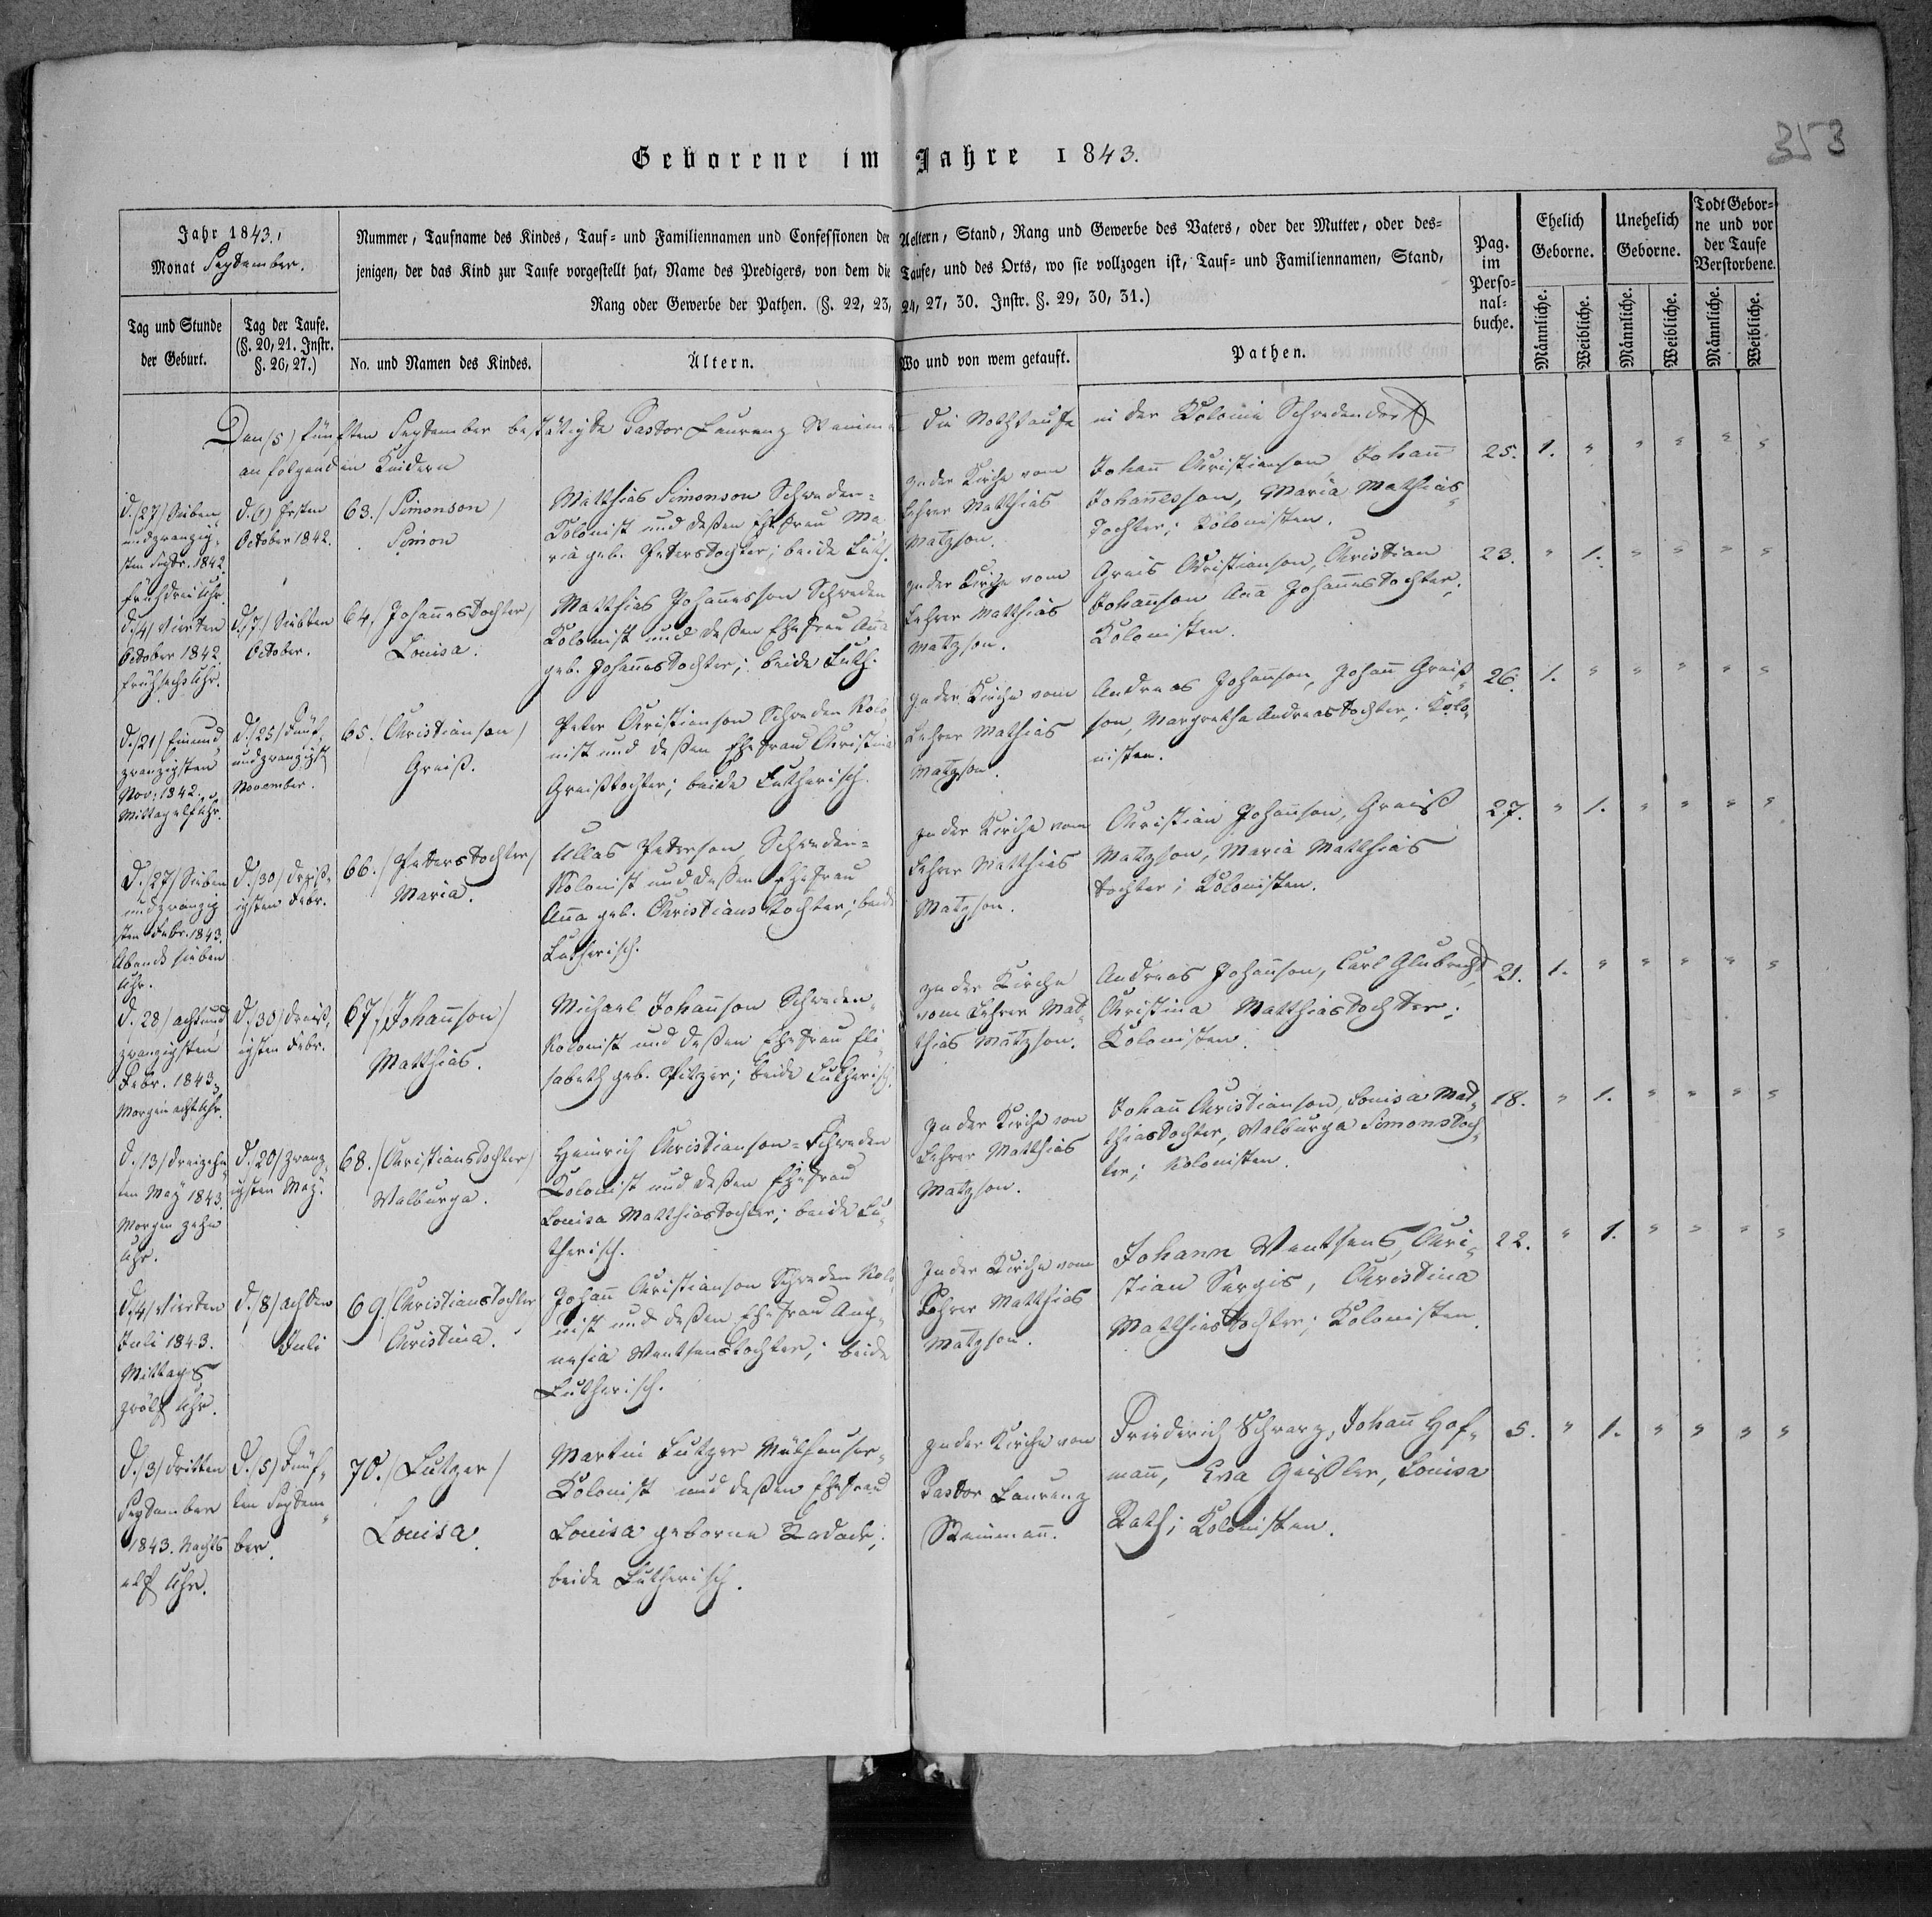 353
Geborene im Jahre 1843.
Jahr 1843,
Monat September.
Nummer, Taufname des Kindes, Tauf- und Familiennamen und Confessionen der Aeltern, Stand, Rang und Gewerbe des Vaters, oder der Mutter, oder des-
jenigen, der das Kind zur Taufe vorgestellt hat, Name des Predigers, von dem die Taufe, und des Orts, wo sie vollzogen ist, Tauf- und Familiennamen, Stand,
Rang oder Gewerbe der Pathen. (§. 22, 23, 24, 27, 30. Instr. §. 29, 30, 31.)
Tag und Stunde
der Geburt.
Tag der Taufe.
(§. 20, 21. Instr.
§. 26, 27.)
No. und Namen des Kindes.
Ältern.
Wo und von wem getauft.
Pathen.
Pag.
im
Perso-
nal-
buche.
Ehelich
Geborne.
Unehelich
Geborne.
Todt Gebor-
ne und vor
der Taufe
Verstorbene.
Männliche.
Weibliche.
Männliche.
Weibliche.
Männliche.
Weibliche.
Den (5) fünften September bestätigte Pastor Laurenz die Nothtaufe in der Kolonie Schwedendorf
an folgenden Kindern
d./27/ Sieben
undzwanzig-
sten Septr. 1842
früh drei Uhr.
d. 6) sten
October 1842.
63./ Simonson/
Simon
Matthias Simonson Schweden-
Kolonist und deßen Ehefrau Ma
ria geb. Peterstochter; beide Luth.
In der Kirche vom
Lehrer Matthias
Matzson.
Johann Christianson, Johann
Johannesson, Maria Mathias-
Tochter; Kolonisten.
25. 1. " " " " "
d./4/ Vierten
October 1842
früh sechs Uhr.
d./7/ Siebten
October.
64./ Johannestochter/
Louisa.
Matthias Johannesson Schweden
Kolonist und deßen Ehefrau Anna
geb. Johannestochter; beide Luth.
In der Kirche vom
Lehrer Matthias
Matzson.
Greis Christianson, Christian
Johannson Anna Johannestochter;
Kolonisten.
23. " 1. " " " "
d./21/ Einund-
zwanzigsten
Nov. 1842.
Mittag elf Uhr.
d./25/ Fünf-
undzwanzigst
November.
65./ Christianson/
Greiß.
Peter Christianson Schweden Kolo
nist und deßen Ehefrau Christina
Greißtochter; beide Lutherisch.
In der Kirche vom
Lehrer Mathias
Matzson.
Andreas Johannson, Johann Greiß-
son, Margretha Andreastochter; Kolo-
nisten.
26. 1. " " " " "
d./27/ Sieben
undzwanzig
sten Febr. 1843.
Abends sieben
Uhr.
d./30/ dreiß-
igsten Febr.
66./ Peterstochter/
Maria.
Ullas Peterson Schweden-
Kolonist und deßen Ehefrau
Anna geb. Christianstochter; beide
Lutherisch.
In der Kirche vom
Lehrer Matthias
Matzson.
Christian Johannson, Greiß
Matzson, Maria Matthias
tochter; Kolonisten.
27. " 1. " " " "
d. 28/ achtund
zwanzigsten
Febr. 1843
Morgen acht Uhr.
d./30/ dreiß-
igsten Febr.
67./ Johannson/
Matthias.
Michael Johannson Schweden-
Kolonist und deßen Ehefrau Eli
sabeth geb. Pitzer; beide Lutherisch.
In der Kirche
vom Lehrer Mat-
thias Matzson.
Andreas Johannson, Carl Glubrecht,
Christina Matthiastochter;
Kolonisten.
21. 1. " " " " "
d./13/ dreizehn
ten May 1843.
Morgen zehn
Uhr.
d./20/ zwanz-
igsten May.
68./ Christianstochter/
Walburga.
Heinrich Christianson-Schweden
Kolonist und deßen Ehefrau
Louisa Matthiastochter; beide Lu-
therisch.
In der Kirche von
Lehrer Matthias
Matzson.
Johann Christianson, Louisa Mat-
thiastochter, Walburga Simonstoch-
ter; Kolonisten.
18. " 1. " " " "
d./4/ Vierten
Juli 1843.
Mittags
zwölf Uhr.
d./8/ achten
Juli
69./ Christianstochter
Christina.
Johann Christianson Schweden Kolo
nist und deßen Ehefrau
beide
Lutherisch.
In der Kirche vom
Lehrer Matthias
Matzson.
Johann Chri-
stian Sergis, Christina
Matthiastochter; Kolonisten.
22. " 1. " " " "
d./3/ dritten
September
1843. Nachts
elf Uhr.
d./5/ Fünf-
ten Septem-
ber.
70./ Lutzer/
Louisa.
Martin Lutzer Mühlhäuser-
Kolonist und deßen Ehefrau
Louisa geborne
beide Lutherisch.
In der Kirche von
Pastor Laurenz
Friederich Schwarz, Johann Hof-
mann, Eva Geißler, Louisa
Rath; Kolonisten.
5. " 1. " " " "